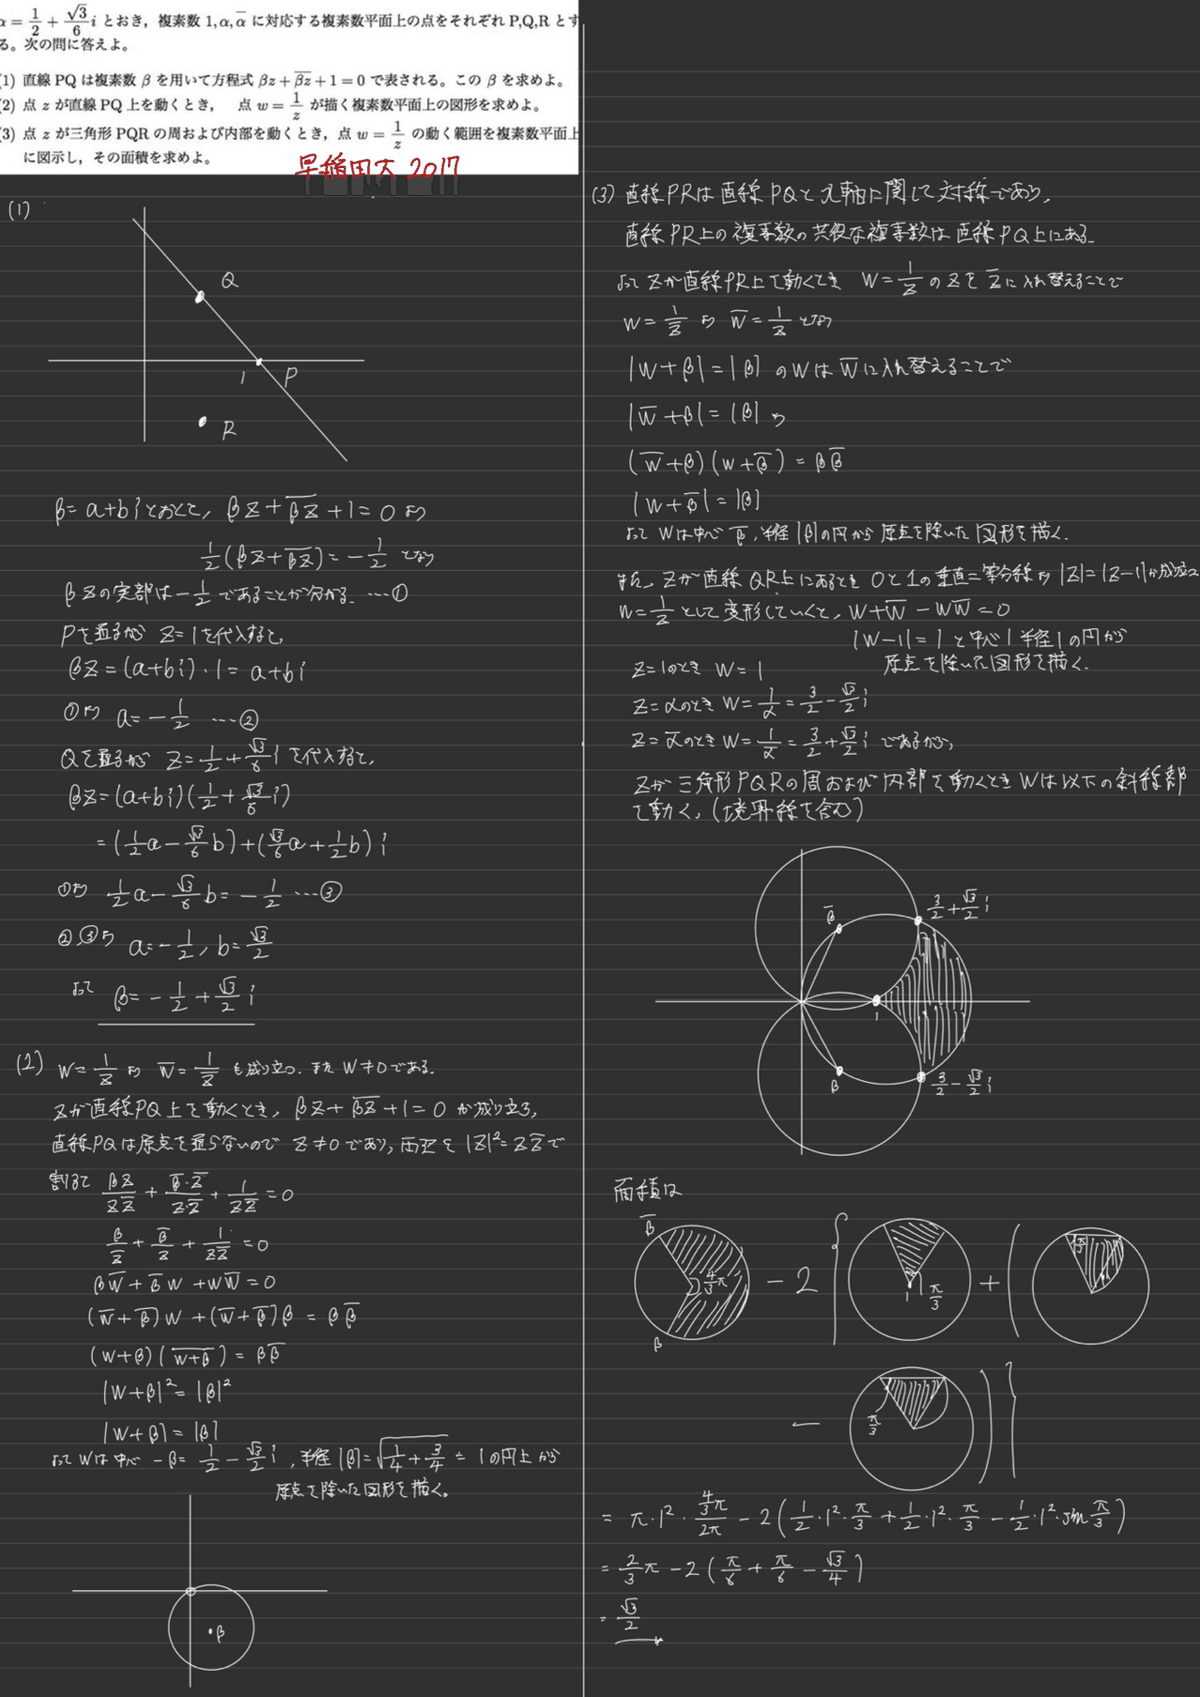 α = 1/2 + √3/6 i とおき，複素数 1, α, \overline{α} に対応する複素数平面上の点をそれぞれ P,Q,R とす
る。次の問に答えよ。
(1) 直線 PQ は複素数 β を用いて方程式 βz + \overline{βz} + 1 = 0 で表される。この β を求めよ。
(2) 点 z が直線 PQ 上を動くとき， 点 w = 1/z が描く複素数平面上の図形を求めよ。
(3) 点 z が三角形 PQR の周および内部を動くとき，点 w = 1/z の動く範囲を複素数平面上
に図示し，その面積を求めよ。
早稲田大 2017
(1)
Q
1
P
R
β = a+bi とおくと, βz + \overline{βz} + 1 = 0 より
1/2(βz + \overline{βz}) = -1/2 となり
βzの実部は -1/2 であることが分かる. …①
Pを通るから z=1を代入すると,
βz = (a+bi)・1 = a+bi
①より a = -1/2 …②
Qを通るから z = 1/2 + √3/6 i を代入すると,
βz = (a+bi)(1/2 + √3/6 i)
= (1/2 a - √3/6 b) + (√3/6 a + 1/2 b) i
①より 1/2 a - √3/6 b = -1/2 …③
②,③より a = -1/2, b = √3/2
よって β = -1/2 + √3/2 i
(2) w = 1/z より \overline{w} = 1/\overline{z} も成り立つ. また w≠0である.
zが直線PQ上を動くとき, βz + \overline{βz} + 1 = 0 が成り立ち,
直線PQは原点を通らないので z≠0であり, 両辺を |z|² = z\overline{z}で
割って βz/z\overline{z} + \overline{β}・\overline{z}/z\overline{z} + 1/z\overline{z} = 0
β/\overline{z} + \overline{β}/z + 1/z\overline{z} = 0
β\overline{w} + \overline{β}w + w\overline{w} = 0
(\overline{w}+\overline{β})w + (\overline{w}+\overline{β})β = β\overline{β}
(w+β)(\overline{w+β}) = β\overline{β}
|w+β|² = |β|²
|w+β| = |β|
よって wは中心 -β = 1/2 - √3/2 i, 半径 |β| = √(1/4 + 3/4) = 1 の円上から
原点を除いた図形を描く。
β
(3) 直線PRは直線PQと x軸に関して対称であり,
直線PR上の複素数の共役な複素数は直線PQ上にある.
よって zが直線PR上を動くとき w = 1/z のzを \overline{z}に入れ替えることで
w = 1/\overline{z} より \overline{w} = 1/z となり
|w+β| = |β| のwは \overline{w}に入れ替えることで
|\overline{w}+β| = |β| より
(\overline{w}+β)(w+\overline{β}) = β\overline{β}
|w+\overline{β}| = |β|
よって wは中心 \overline{β}, 半径 |β|の円から原点を除いた図形を描く.
また, zが直線QR上にあるとき 0と1の垂直二等分線より |z| = |z-1|が成立つ
w = 1/z として変形していくと, w+\overline{w} - w\overline{w} = 0
|w-1| = 1 と中心1 半径1の円から
原点を除いた図形を描く.
z=1のとき w = 1
z=αのとき w = 1/α = 3/2 - √3/2 i
z=\overline{α}のとき w = 1/\overline{α} = 3/2 + √3/2 i であるから,
zが三角形PQRの周および内部を動くとき wは以下の斜線部
を動く. (境界線を含む)
\overline{β}
3/2 + √3/2 i
1
β
3/2 - √3/2 i
面積は
\overline{β} 4/3 π β - 2 { 1 π/3 + ( π/3
- π/3 ) }
= π・1²・(4/3 π)/2π - 2(1/2・1²・π/3 + 1/2・1²・π/3 - 1/2・1²・sin π/3)
= 2/3 π - 2(π/6 + π/6 - √3/4)
= √3/2